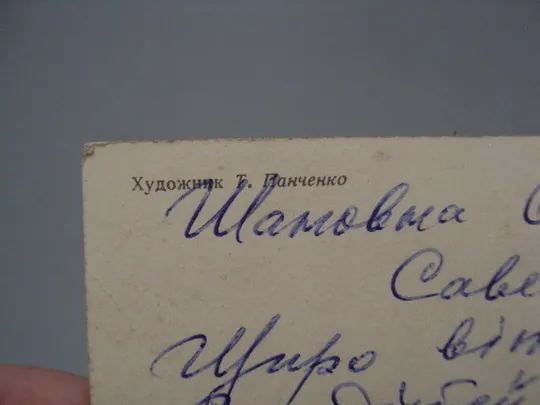 Художник Т. Панченко
Шановна
Саве
Щиро віт